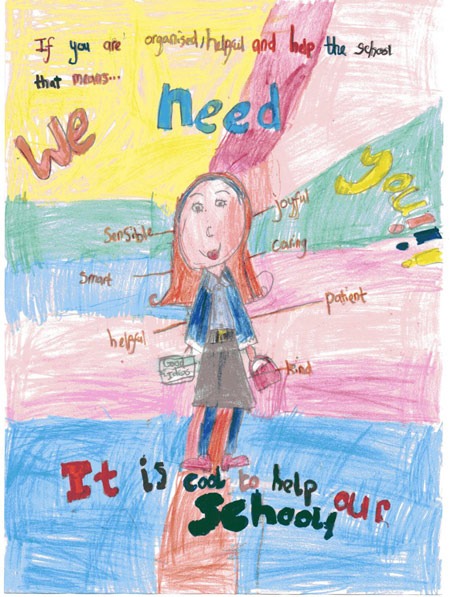 If you are organised, helpful and help the school
that means...
We need you!!!
Sensible
joyful
caring
smart
patient
helpful
kind
Good
It is cool to help our
School